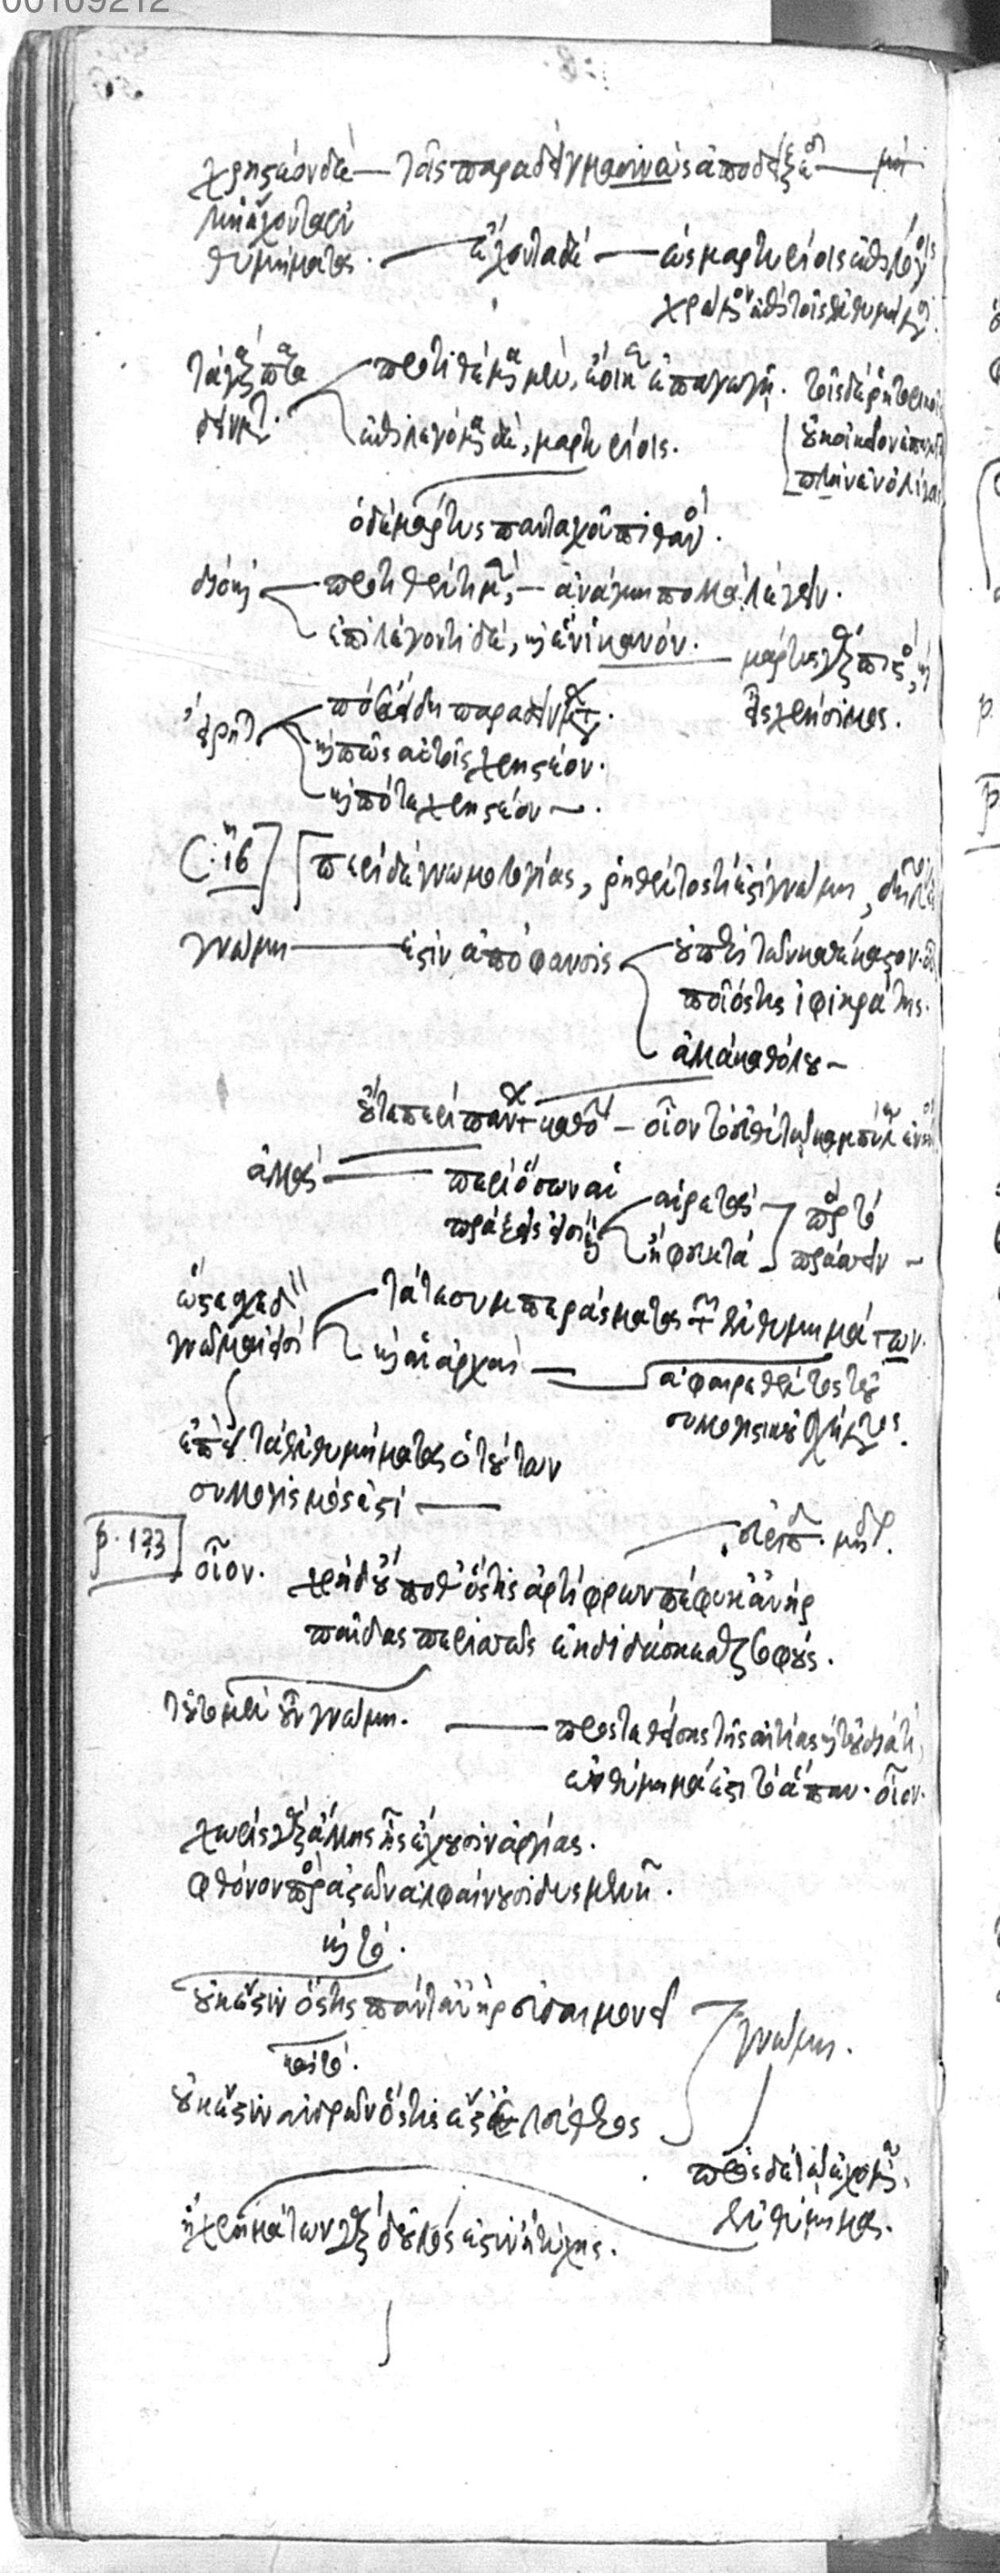 00109212
χρηστέον δὲ — τοῖς παραδείγμασιν ὡς ἀποδείξεσι — μὴ
μὴ ἔχοντα ἐν
θυμήματα. — ἔχοντα δὲ — ὡς μαρτυρίοις ἐπιλόγοις
χρώμενον ἐπὶ τοῖς ἐνθυμήμασι.
τὰ γὰρ παρα
δείγματ. προτιθέμενα μὲν, ἔοικεν ἐπαγωγῇ. τοῖς δὲ ῥητορικοῖς
οὐκ οἰκεῖον ἐπαγωγὴ
πλὴν ἐν ὀλίγοις
ἐπιλεγόμενα δὲ, μαρτυρίοις.
ὁ δὲ μάρτυς πανταχοῦ πιθανός.
διὸ καὶ — προτιθέντι μὲν, — ἀνάγκη πολλὰ λέγειν.
ἐπιλέγοντι δὲ, καὶ ἓν ἱκανόν. — μάρτυς γὰρ πιστὸς, καὶ
εἷς χρήσιμος.
εἴρηται πόσα εἴδη παραδειγμάτων.
καὶ πῶς αὐτοῖς χρηστέον.
καὶ πότε χρηστέον.
περὶ δὲ γνωμολογίας, ῥηθέντος τί ἐστι γνώμη,
γνώμη — ἐστὶν ἀπόφανσις οὔτε περὶ τῶν καθ' ἕκαστον.
ποῖός τις ἰφικράτης.
ἀλλὰ καθόλου —
οὔτε περὶ πάντων καθόλου — οἷον ὅτι τὸ εὐθὺ τῷ καμπύλῳ ἐναντίον
ἀλλὰ — περὶ ὅσων αἱ
πράξεις εἰσὶ καὶ αἱρετὰ ἢ φευκτὰ πρὸς τὸ
πράττειν —
ὥστε σχεδὸν
γνῶμαι εἰσὶ τά τε συμπεράσματα τῶν ἐνθυμημάτων.
καὶ αἱ ἀρχαὶ — ἀφαιρεθέντος τοῦ
συλλογισμοῦ
ἐπεὶ τὰ ἐνθυμήματα ὁ τούτων
συλλογισμός ἐστι —
p. 133 οἷον. εὐριπ. μηδ.
χρὴ δ' οὔ ποθ' ὅστις ἀρτίφρων πέφυκ' ἀνήρ
παῖδας περισσῶς ἐκδιδάσκεσθαι σοφούς.
τοῦτο μὲν οὖν γνώμη. — προστεθείσης τῆς αἰτίας καὶ τοῦ διὰ τί,
ἐνθύμημά ἐστι τὸ ἅπαν. οἷον.
χωρὶς γὰρ ἄλλης ἧς ἔχουσιν ἀργίας.
φθόνον παρ' ἀστῶν ἀλφαίνουσι δυσμενῆ.
καὶ τὸ.
οὐκ ἔστιν ὅστις πάντ' ἀνὴρ εὐδαιμονεῖ
γνώμη.
καὶ τὸ.
οὐκ ἔστιν ἀνδρῶν ὅστις ἔστ' ἐλεύθερος
πρὸς δὲ τῷ ἐχομένῳ,
ἐνθύμημα.
ἢ χρημάτων γὰρ δοῦλός ἐστιν ἢ τύχης.